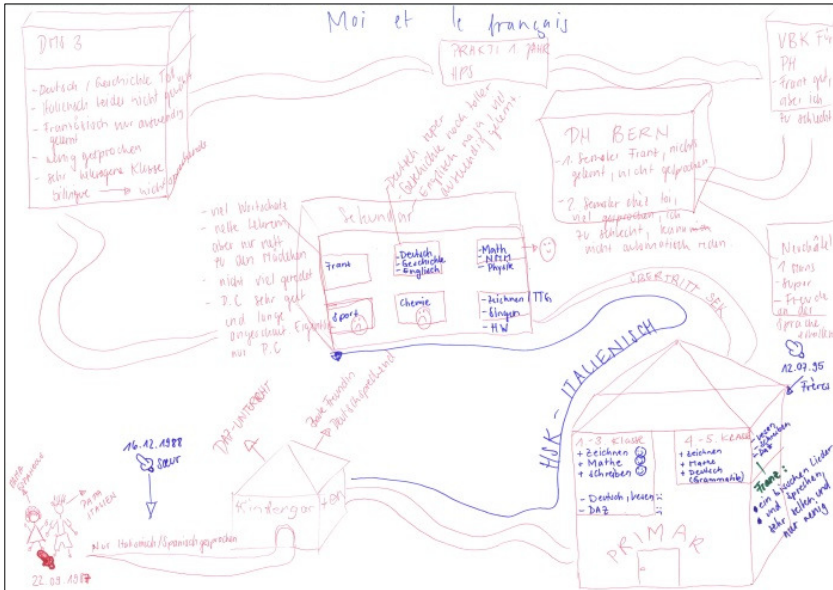 Moi et le français
DMS 3
- Deutsch / Geschichte Toll
- Italienisch leider nicht
- Französisch nur auswendig
gelernt
- wenig gesprochen
- sehr heterogene Klasse
bilingue → 
PRAKTI 1. JAHR
HPS
VBK Für
PH
- Franz gut,
aber ich
zu schlecht
PH BERN
- 1. Semester Franz, nichts
gelernt, nicht gesprochen
- 2. Semester chez toi,
viel gesprochen, ich
zu schlecht, kann
nicht automatisch reden.
Deutsch super
Geschichte noch toller
Englisch naja viel
auswendig gelernt
- viel Wortschatz
- nette Lehrerin,
aber nur nett
zu den Mädchen
- nicht viel geredet
- P.C sehr gut
und lange
angeschaut Eigentlich
nur P.C
Sekundar
Franz
- Deutsch
- Geschichte
- Englisch
- Math
- NMM
- Physik
Sport
Chemie
- Zeichnen / TTG
- Singen
- HW
ÜBERTRITT SEK
1 Mons
- Super
- Freude
an der
Sprache
12.07.95
Frères
HSK - ITALIENISCH
DAZ-UNTERRICHT
Gute Freundin
Deutschsprechend
16.12.1988
Sœur
MAMA
SPANIEN
PAPA
ITALIEN
Nur Italienisch/Spanisch gesprochen
22.09.1987
Kindergarten
1.-3. Klasse
+ Zeichnen
+ Mathe
+ Schreiben
- Deutsch, lesen
- DAZ
4.-5. Klasse
+ Zeichnen
+ Mathe
+ Deutsch
(Grammatik)
- Lesen
- Schreiben
- DaZ
Franz:
• ein bisschen Lieder
• und sprechen,
sehr selten und
nur wenig
PRIMAR